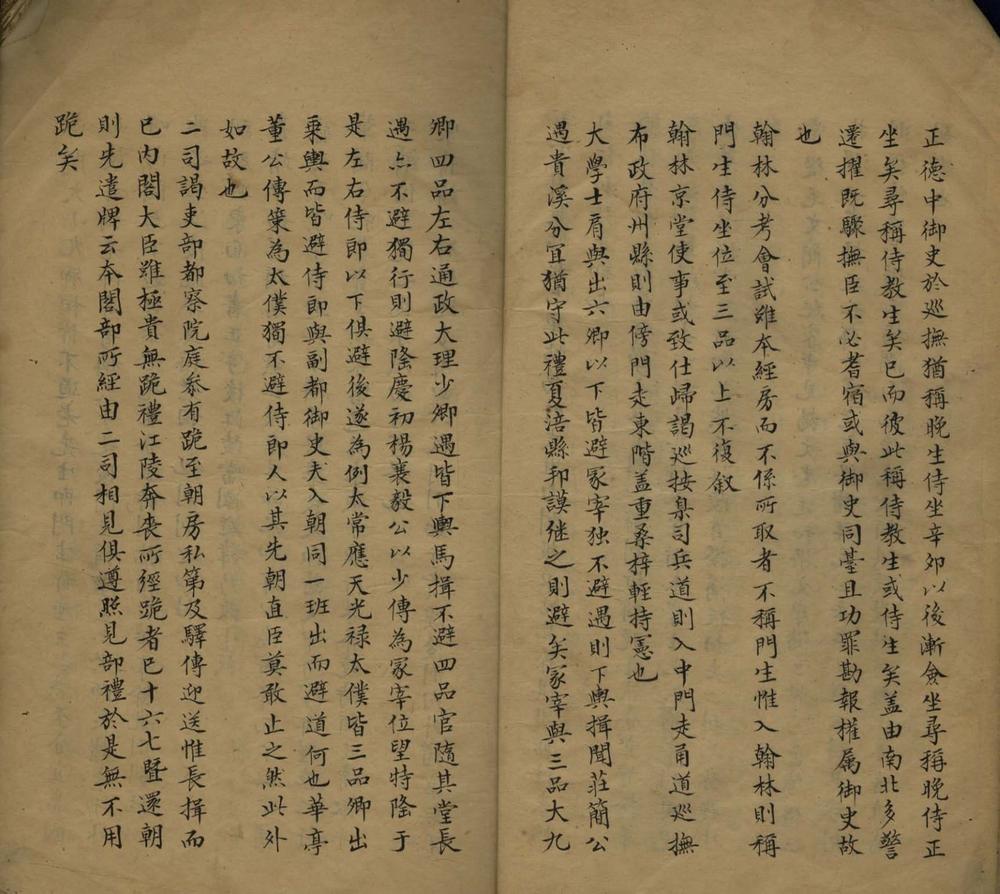 正德中御史於巡撫猶稱晚生侍坐辛夘以後漸僉坐尋稱晚侍正
坐矣尋稱侍教生矣已而彼此稱侍教生或侍生矣盖由南北多警
遷擢既驟撫臣不必耆宿或與御史同臺且功罪勘報權属御史故
也
翰林分考會試雖本經房而不係所取者不稱門生惟入翰林則稱
門生侍坐位至三品以上不復叙
翰林京堂使事或致仕歸謁巡按臬司兵道則入中門走甬道巡撫
布政府州縣則由傍門走東階盖重桑梓輕持憲也
大學士肩輿出六卿以下皆避冡宰独不避遇則下輿揖聞莊簡公
遇貴溪分宜猶守此禮夏涪縣邦謨继之則避矣冡宰與三品大九
卿四品左右通政大理少卿遇皆下輿馬揖不避四品官隨其堂長
遇亦不避獨行則避隆慶初楊襄毅公以少傅為冡宰位望特隆于
是左右侍郎以下俱避後遂為例太常應天光禄太僕皆三品卿出
乘輿而皆避侍郎與副都御史夫入朝同一班出而避道何也華亭
董公傳策為太僕獨不避侍郎人以其先朝直臣莫敢止之然此外
如故也
二司謁吏部都察院庭叅有跪至朝房私第及驛傳迎送惟長揖而
已内閣大臣雖極貴無跪禮江陵奔喪所經跪者巳十六七暨還朝
則先遣牌云本閣部所經由二司相見俱遵照見部禮於是無不用
跪矣